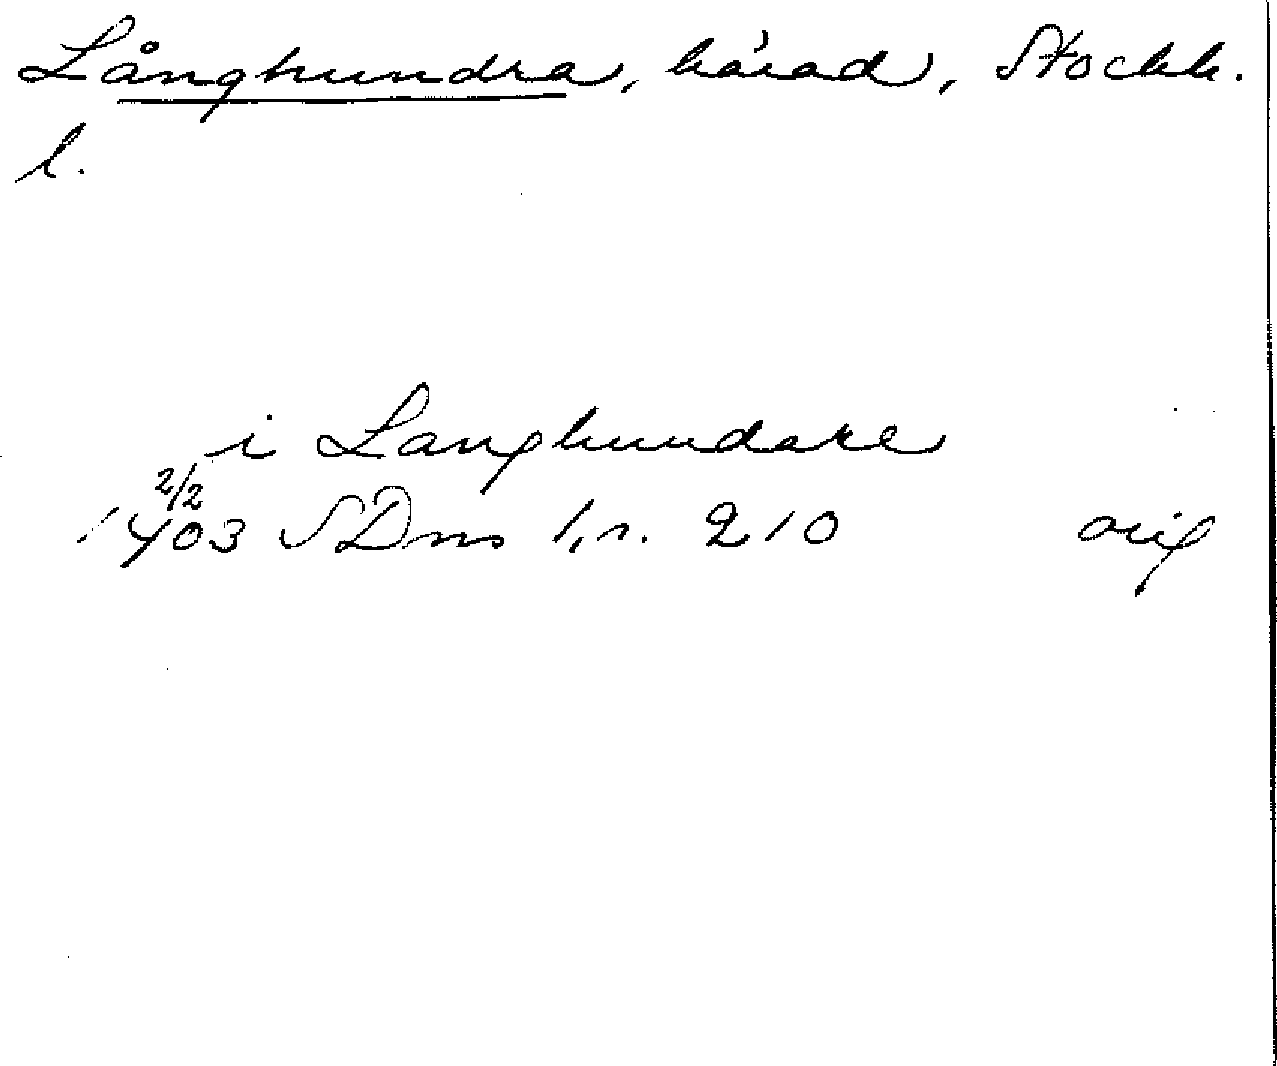 Långhundra, härad, Stockh.
l.
i Langhundare
2/2
1403 SDns 1, s. 210 orig